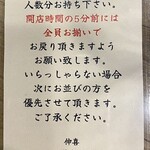 人数分お持ち下さい。
開店時間の5分前には
全員お揃いで
お戻り頂きますよう
お願い致します。
いらっしゃらない場合
次にお並びの方を
優先させて頂きます。
ご了承ください。
仲喜